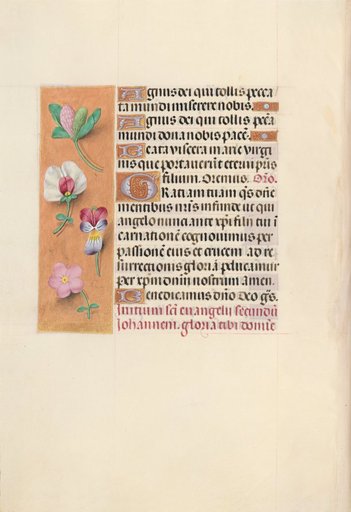 Agnus dei qui tollis pecca
ta mundi miserere nobis.
Agnus dei qui tollis pcc̃a
mundi dona nobis pacẽ.
Beata viscera marie virgi
nis que portaverũt eterni pr̃is
filium. Oremus. Or̃o.
Gratiam tuam qs̃ dñe
mentibus nr̃is infunde ut qui
angelo nunciante xp̃i filii tui ĩ
carnationẽ cognovimus per
passionẽ eius et crucem ad re
surrectionis gloriã p̃ducamur
per xp̃m dñm nostrum amen.
Benedicamus dño Deo gr̃s.
Initium sc̃i euangelii secundũ
Iohannem. gloria tibi domine